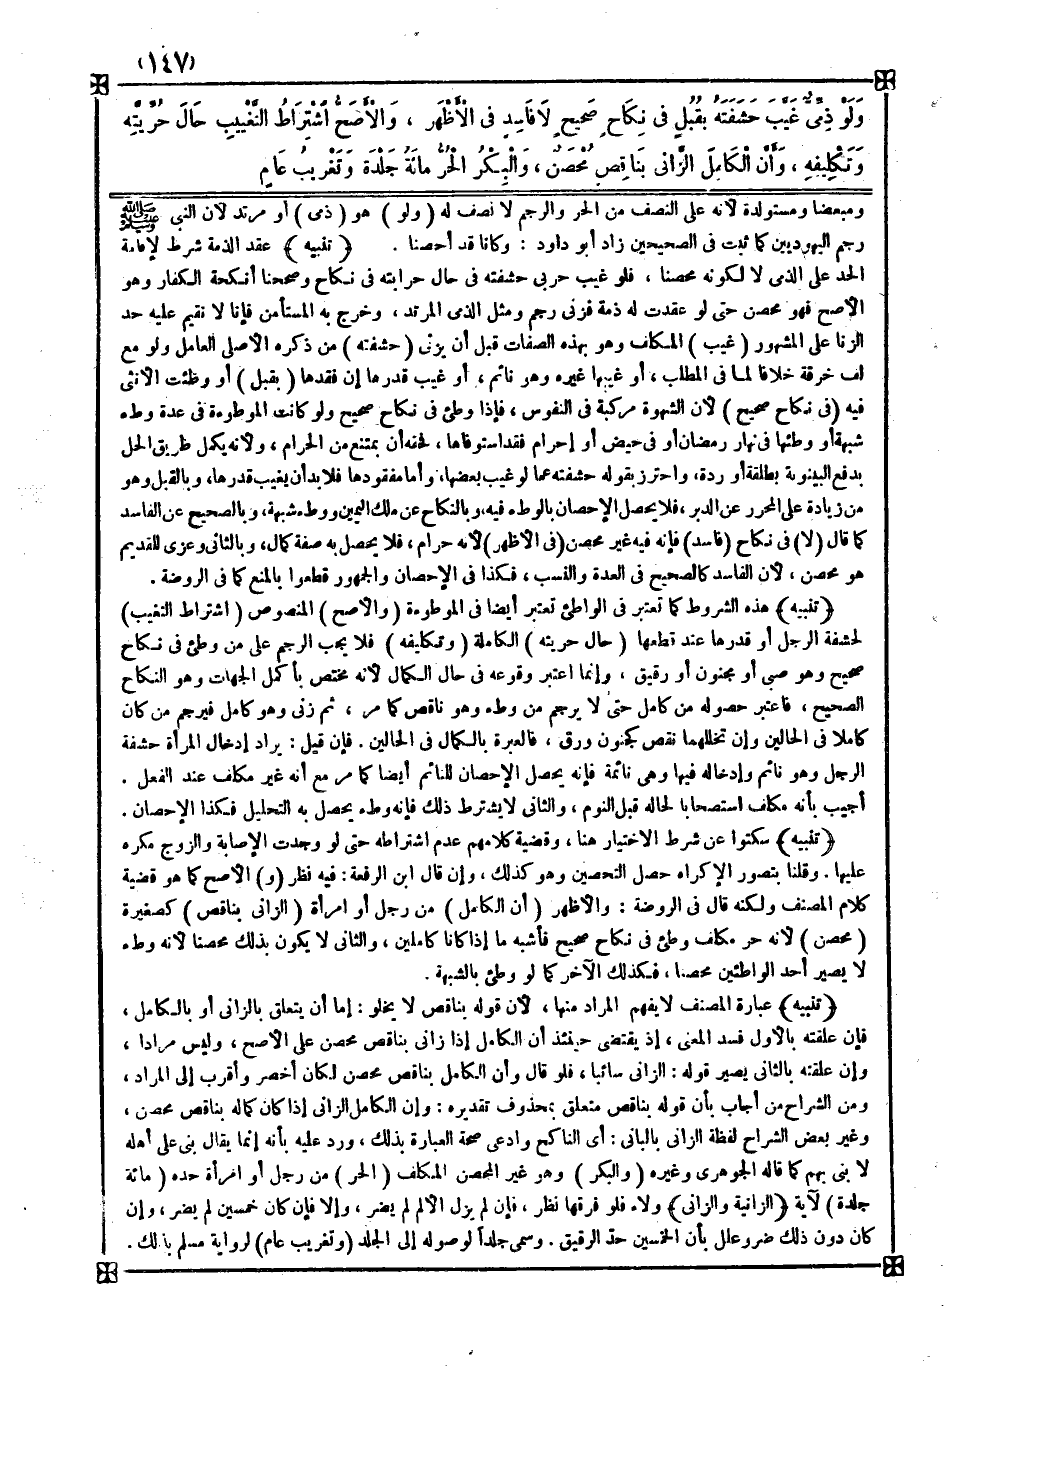 (١٤٧)
وَلَوْ ذِمِّيٌّ غَيَّبَ حَشَفَتَهُ بِقُبُلٍ فِى نِكَاحٍ صَحِيحٍ لَا فَاسِدٍ فِى الْأَظْهَرِ ، وَالْأَصَحُّ اشْتِرَاطُ التَّغْيِيبِ حَالَ حُرِّيَّتِهِ
وَتَكْلِيفِهِ ، وَأَنَّ الْكَامِلَ الزَّانِى بِنَاقِصٍ مُحْصَنٌ ، وَالْبِكْرُ الْحُرُّ مِائَةُ جَلْدَةٍ وَتَغْرِيبُ عَامٍ
ومبعضا ومستولدة لأنه على النصف من الحر والرجم لا نصف له (ولو) هو (ذمى) أو مرتد لأن النبى ﷺ
رجم اليهوديين كما ثبت فى الصحيحين زاد أبو داود : وكانا قد أحصنا . (تنبيه) عقد الذمة شرط لإقامة
الحد على الذمى لا لكونه محصنا ، فلو غيب حربى حشفته فى حال حرابته فى نكاح وصححنا أنكحة الكفار وهو
الأصح فهو محصن حتى لو عقدت له ذمة فزنى رجم ومثل الذمى المرتد ، وخرج به المستأمن فإنا لا نقيم عليه حد
الزنا على المشهور (غيب) المكلف وهو بهذه الصفات قبل أن يزنى (حشفته) من ذكره الأصلى العامل ولو مع
لف خرقة خلافا لما فى المطلب ، أو غيبها غيره وهو نائم ، أو غيب قدرها إن فقدها (بقبل) أو وظئت الأنثى
فيه (فى نكاح صحيح) لأن الشهوة مركبة فى النفوس ، فإذا وطئ فى نكاح صحيح ولو كانت الموطوءة فى عدة وطء
شبهة أو وطئها فى نهار رمضان أو فى حيض أو إحرام فقد استوفاها ، فحقه أن يمتنع من الحرام ، ولأنه يكمل طريق الحل
بدفع البينونة بطلقة أو ردة، واحترز بقوله حشفته عما لو غيب بعضها، وأما مفقودها فلابد أن يغيب قدرها، وبالقبل وهو
من زيادة على المحرر عن الدبر ، فلا يحصل الإحصان بالوطء فيه، وبالنكاح عن ملك اليمين ووطء شبهة، وبالصحيح عن الفاسد
كما قال (لا) فى نكاح (فاسد) فإنه فيه غير محصن (فى الأظهر) لأنه حرام ، فلا يحصل به صفة كمال، وبالثانى وعزى للقديم
هو محصن ، لأن الفاسد كالصحيح فى العدة والنسب ، فكذا فى الإحصان والجمهور قطعوا بالمنع كما فى الروضة .
(تنبيه) هذه الشروط كما تعتبر فى الواطئ تعتبر أيضا فى الموطوءة (والأصح) المنصوص (اشتراط التغيب)
لحشفة الرجل أو قدرها عند قطعها (حال حريته) الكاملة (وتكليفه) فلا يجب الرجم على من وطئ فى نكاح
صحيح وهو صبى أو مجنون أو رقيق ، وإنما اعتبر وقوعه فى حال الكمال لأنه مختص بأكمل الجهات وهو النكاح
الصحيح ، فاعتبر حصوله من كامل حتى لا يرجم من وطء وهو ناقص كما مر ، ثم زنى وهو كامل فيرجم من كان
كاملا فى الحالين وإن تخللهما نقص كجنون ورق ، فالعبرة بالكمال فى الحالين . فإن قيل : يراد إدخال المرأة حشفة
الرجل وهو نائم وإدخاله فيها وهى نائمة فإنه يحصل الإحصان للنائم أيضا كما مر مع أنه غير مكلف عند الفعل .
أجيب بأنه مكلف استصحابا لحاله قبل النوم ، والثانى لا يشترط ذلك فإنه وطء يحصل به التحليل فكذا الإحصان .
(تنبيه) سكتوا عن شرط الاختيار هنا ، وقضية كلامهم عدم اشتراطه حتى لو وجدت الإصابة والزوج مكره
عليها . وقلنا بتصور الإكراه حصل التحصين وهو كذلك ، وإن قال ابن الرفعة : فيه نظر (و) الأصح كما هو قضية
كلام المصنف ولكنه قال فى الروضة : والأظهر (أن الكامل) من رجل أو امرأة (الزانى بناقص) كصغيرة
(محصن) لأنه حر مكلف وطئ فى نكاح صحيح فأشبه ما إذا كانا كاملين ، والثانى لا يكون بذلك محصنا لأنه وطء
لا يصير أحد الواطئين محصنا ، فكذلك الآخر كما لو وطئ بالشبهة .
(تنبيه) عبارة المصنف لا يفهم المراد منها ، لأن قوله بناقص لا يخلو : إما أن يتعلق بالزانى أو بالكامل ،
فإن علقته بالأول فسد المعنى ، إذ يقتضى حينئذ أن الكامل إذا زانى بناقص محصن على الأصح ، وليس مرادا ،
وإن علقته بالثانى يصير قوله : الزانى سائبا ، فلو قال وأن الكامل بناقص محصن لكان أخصر وأقرب إلى المراد ،
ومن الشراح من أجاب بأن قوله بناقص متعلق بمحذوف تقديره : وإن الكامل الزانى إذا كان كماله بناقص محصن ،
وغير بعض الشراح لفظة الزانى بالبانى : أى الناكح وادعى صحة العبارة بذلك ، ورد عليه بأنه إنما يقال بنى على أهله
لا بنى بهم كما قاله الجوهرى وغيره (والبكر) وهو غير المحصن المكلف (الحر) من رجل أو امرأة حده (مائة
جلدة) لآية (الزانية والزانى) ولاء فلو فرقها نظر ، فإن لم يزل الألم لم يضر ، وإلا فإن كان خمسين لم يضر ، وإن
كان دون ذلك ضر وعلل بأن الخمسين حد الرقيق . وسمى جلداً لوصوله إلى الجلد (وتغريب عام) لرواية مسلم بذلك .